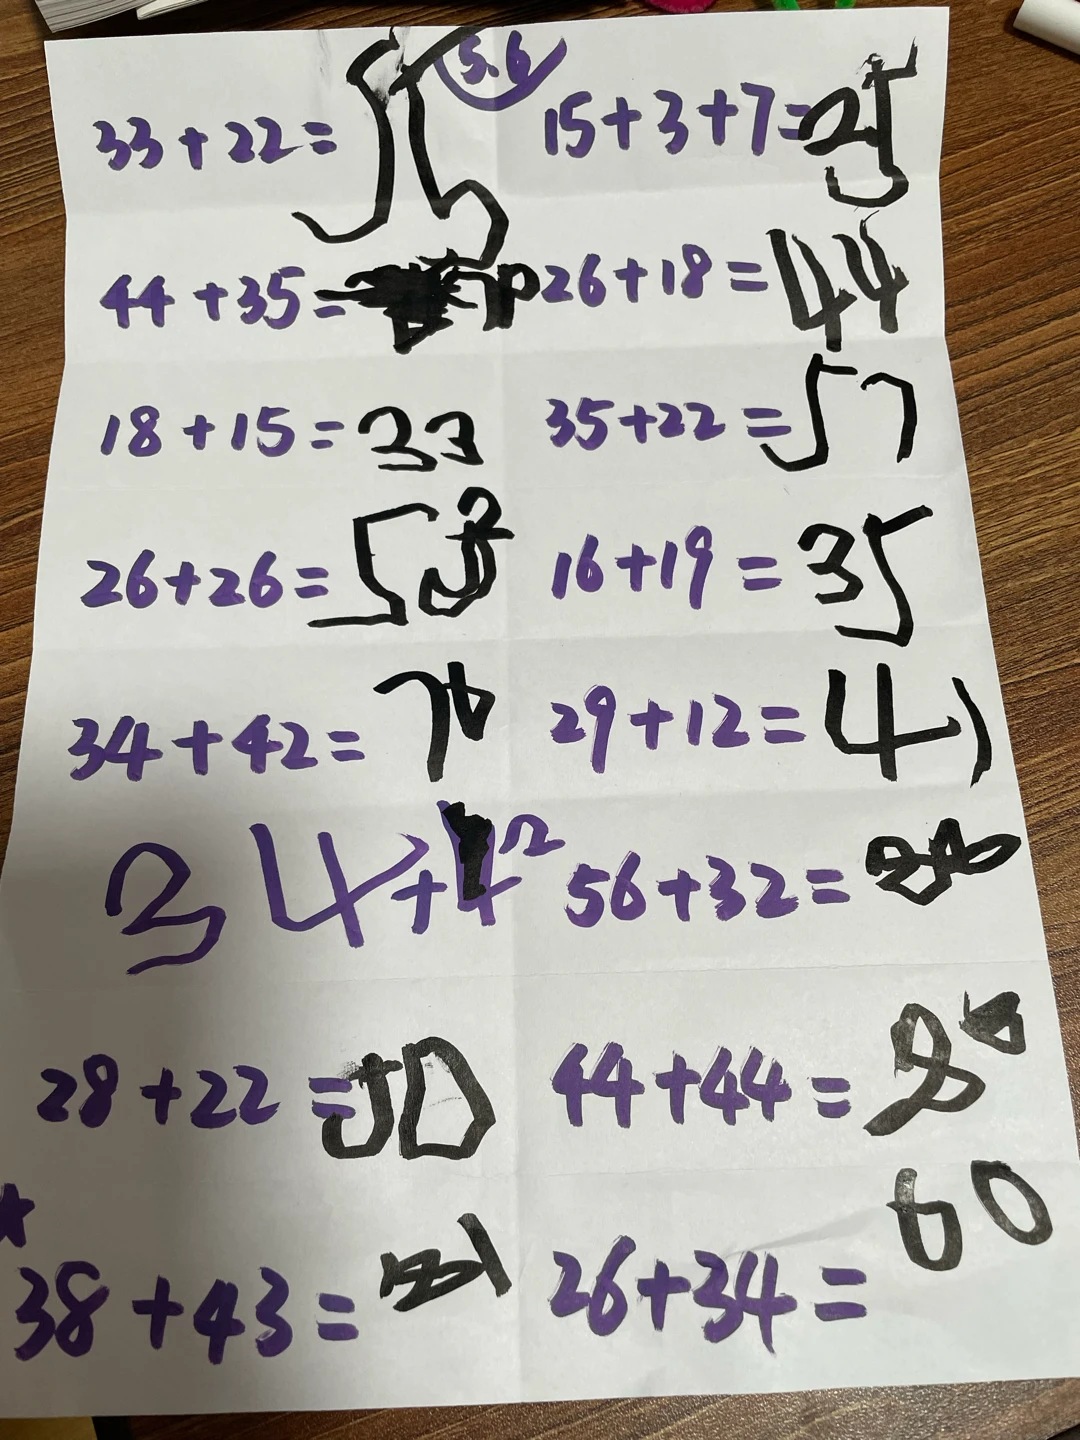 5.6
33+22=55 15+3+7=25
44+35= 26+18=44
18+15=33 35+22=57
26+26=52 16+19=35
34+42=76 29+12=41
34+42 56+32=88
28+22=50 44+44=88
★
38+43=81 26+34=60